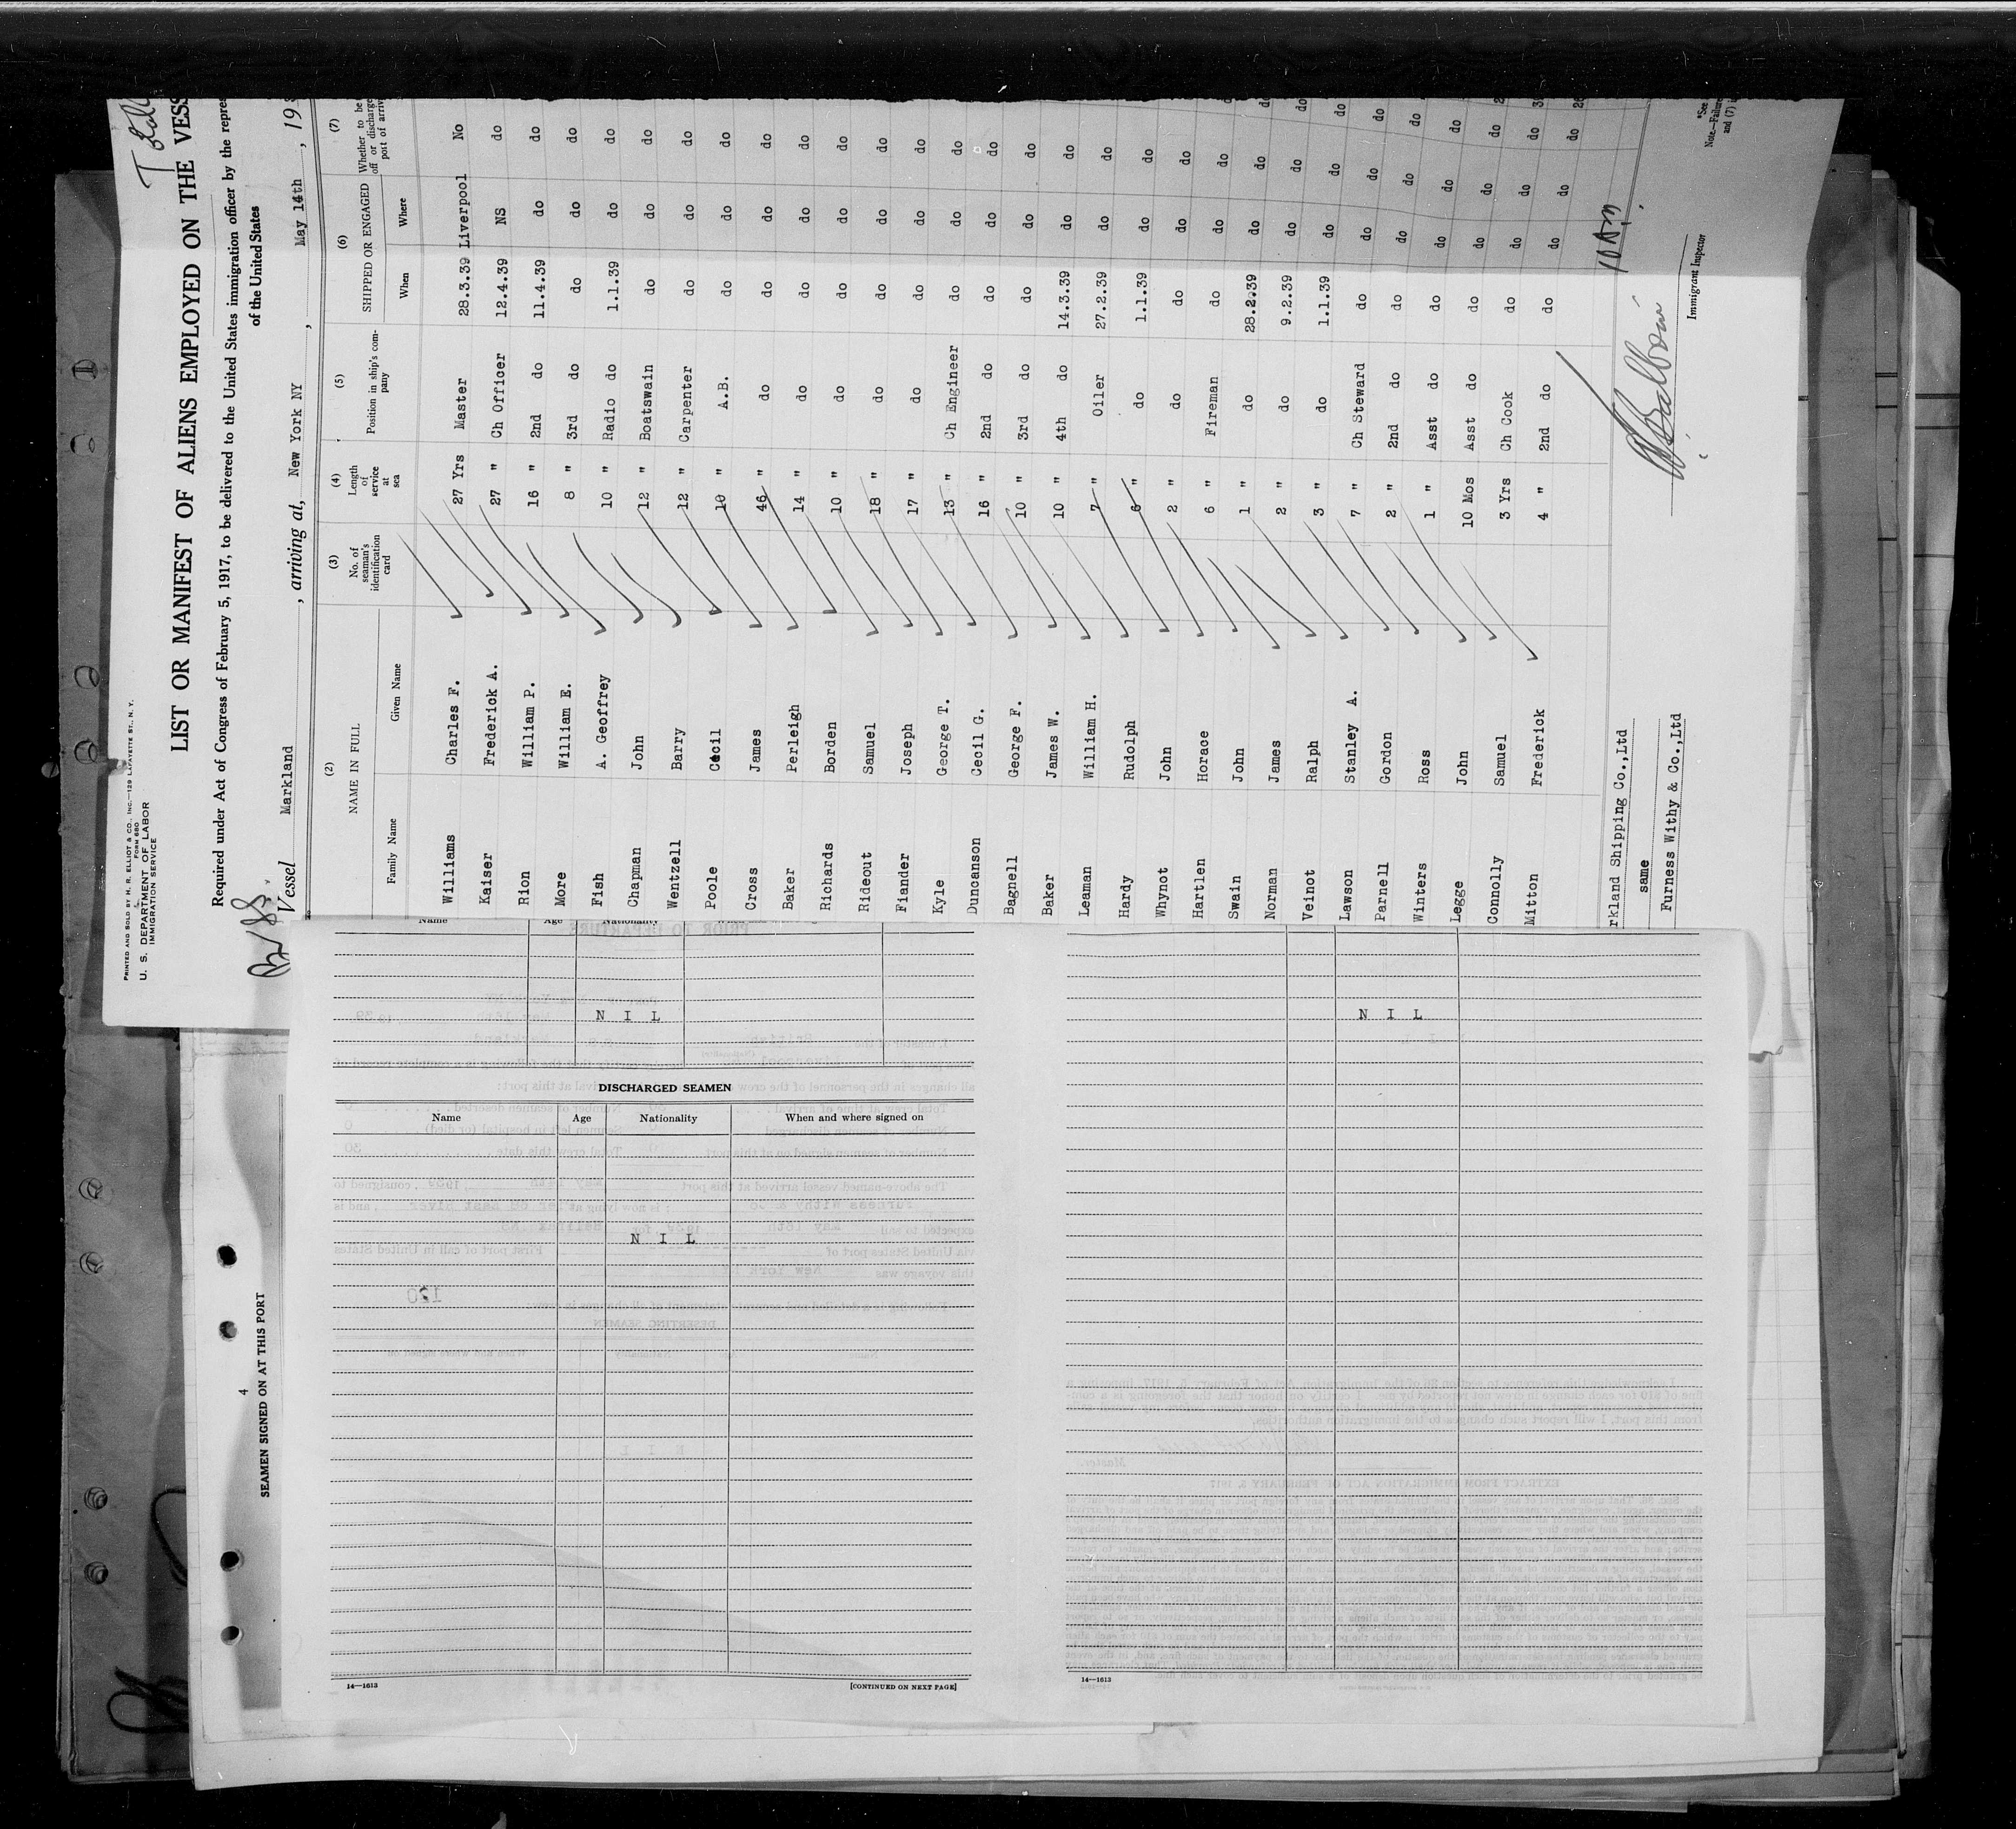 PRINTED AND SOLD BY H. R. ELLIOT & CO., INC.—129 LAFAYETTE ST., N. Y.
FORM 680
U. S. DEPARTMENT OF LABOR
IMMIGRATION SERVICE
LIST OR MANIFEST OF ALIENS EMPLOYED ON THE VESS
Required under Act of Congress of February 5, 1917, to be delivered to the United States immigration officer by the repres
of the United States
Vessel Markland , arriving at, New York NY , May 14th , 193
(2) (3) (4) (5) (6) (7)
NAME IN FULL No. of seaman's identification card Length of service at sea Position in ship's company SHIPPED OR ENGAGED Whether to be off or discharge post of arriv
Family Name Given Name When Where
Williams Charles F. 27 Yrs Master 28.3.39 Liverpool No
Kaiser Frederick A. 27 " Ch Officer 12.4.39 NS do
Rion William P. 16 " 2nd do 11.4.39 do do
More William E. 8 " 3rd do do do do
Fish A. Geoffrey 10 " Radio do 1.1.39 do do
Chapman John 12 " Boatswain do do do
Wentzell Barry 12 " Carpenter do do do
Poole Cecil 10 " A.B. do do do
Cross James 46 " do do do do
Baker Perleigh 14 " do do do do
Richards Borden 10 " do do do do
Rideout Samuel 18 " do do do do
Fiander Joseph 17 " do do do do
Kyle George T. 13 " Ch Engineer do do do
Duncanson Cecil G. 16 " 2nd do do do do
Bagnell George F. 10 " 3rd do do do do
Baker James W. 10 " 4th do 14.3.39 do do
Leaman William H. 7 " Oiler 27.2.39 do do
Hardy Rudolph 6 " do 1.1.39 do do
Whynot John 2 " do do do do
Hartlen Horace 6 " Fireman do do do
Swain John 1 " do 28.2.39 do do
Norman James 2 " do 9.2.39 do do
Veinot Ralph 3 " do 1.1.39 do do
Lawson Stanley A. 7 " Ch Steward do do do
Parnell Gordon 2 " 2nd do do do do
Winters Ross 1 " Asst do do do do
Legge John 10 Mos Asst do do do do
Connolly Samuel 3 Yrs Ch Cook do do do
Mitton Frederick 4 " 2nd do do do do
rkland Shipping Co.,Ltd
same
Furness Withy & Co.,Ltd
Immigrant Inspector
*See
Note.—Failure
and (7) i
Name Age Nationality
N I L
DISCHARGED SEAMEN
Name Age Nationality When and where signed on
N I L
14—1613 [CONTINUED ON NEXT PAGE]
N I L
14—1613
4
SEAMEN SIGNED ON AT THIS PORT